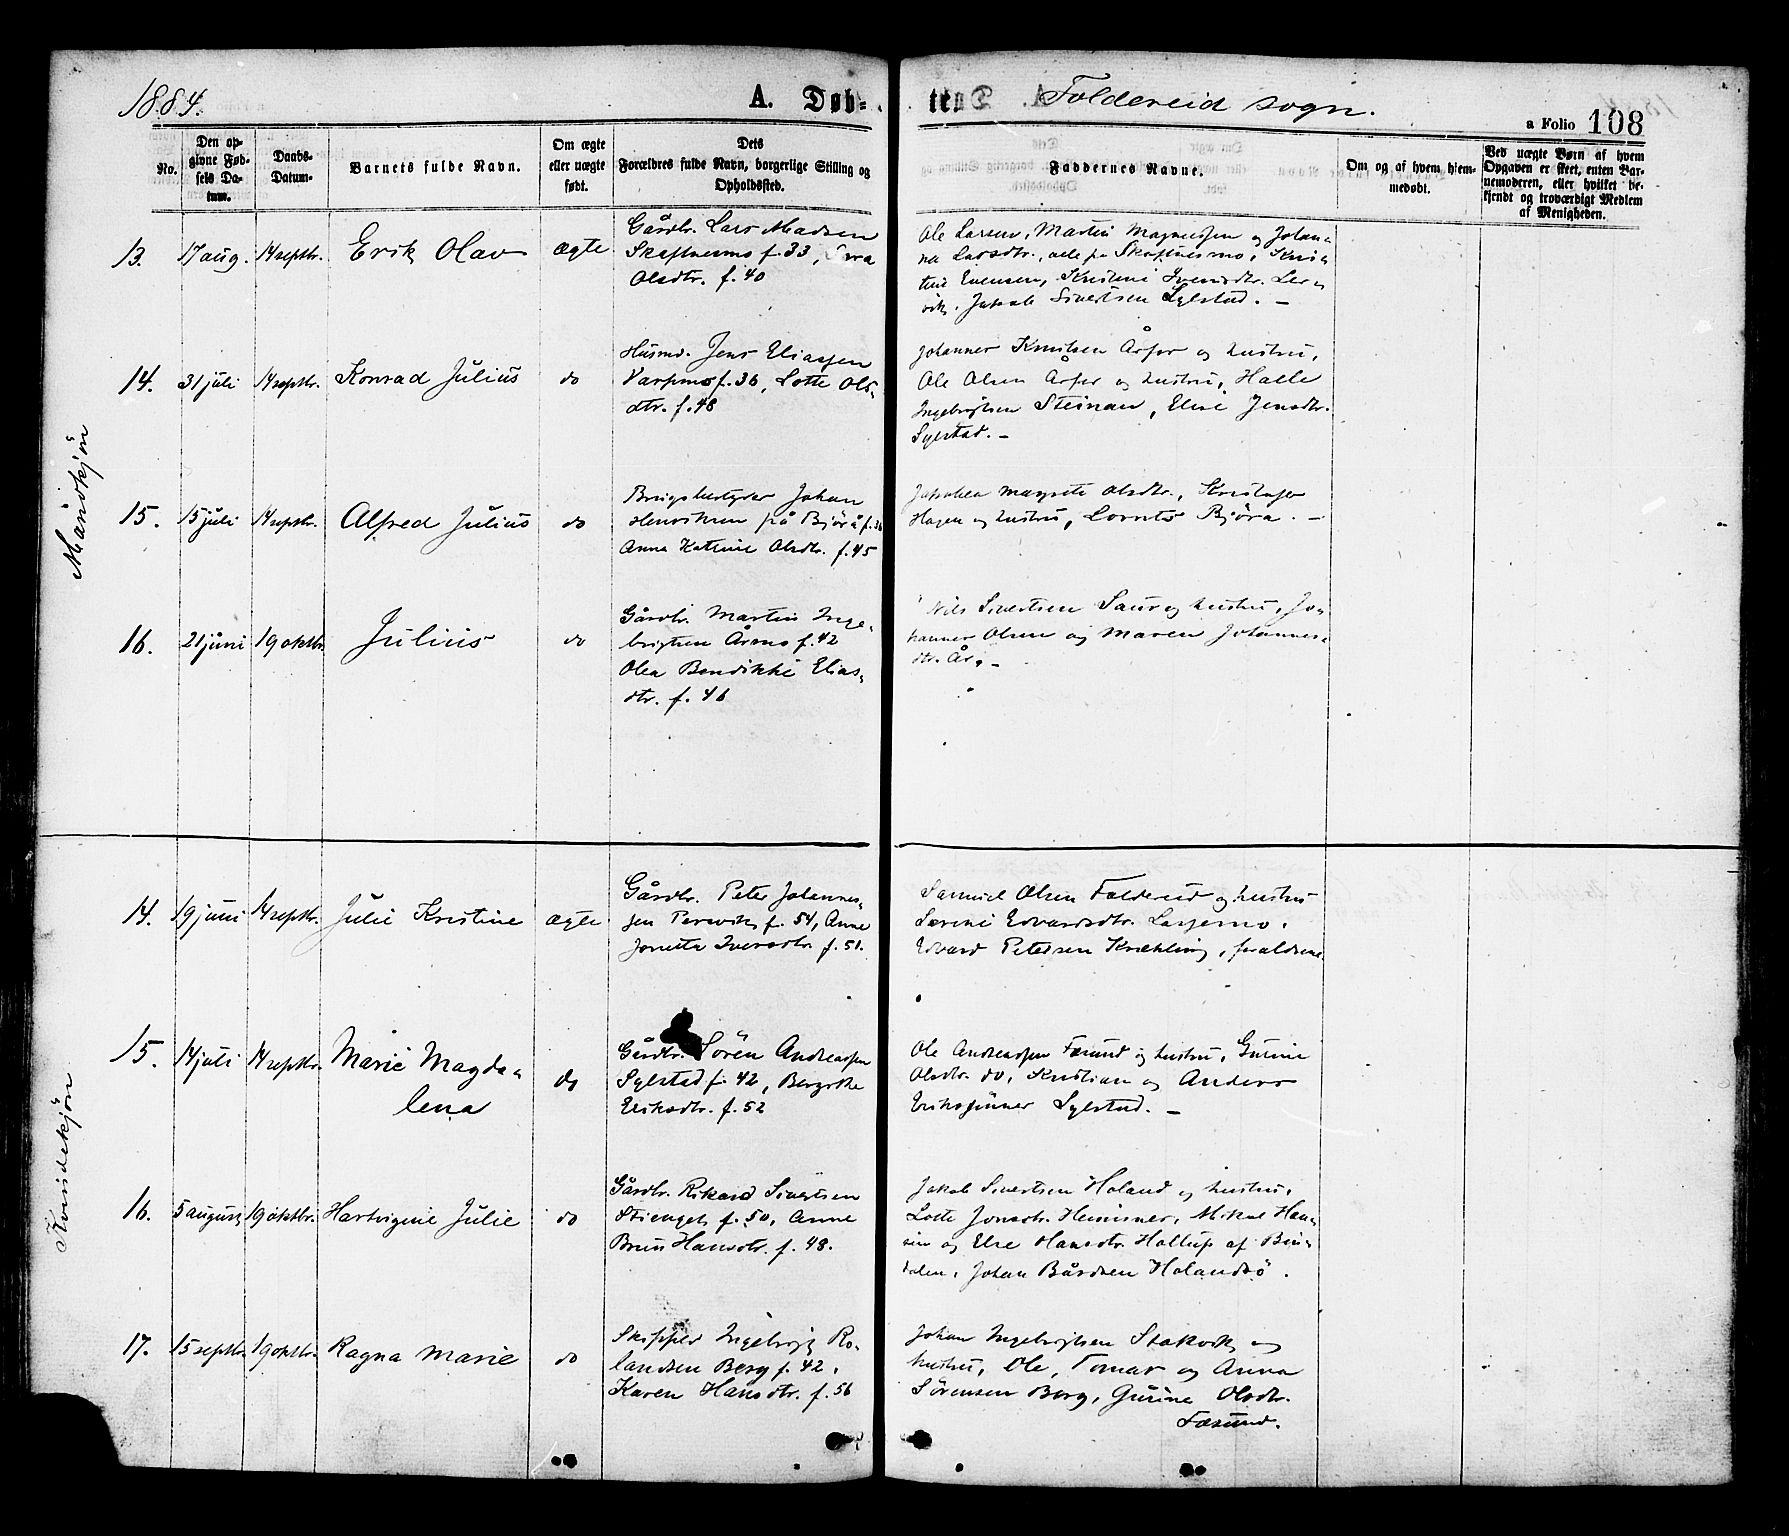 1884.
A. Døb-
te
Foldereid sogn.
a Folio 108
No.
Den op-
givne Fød-
sels Da-
tum.
Daabs-
Datum.
Barnets fulde Navn.
Om ægte
eller uægte
født.
Dets
Forældres fulde Navn, borgerlige Stilling og
Opholdssted.
Faddernes Navne.
Om og af hvem hjem-
medøbt.
Ved uægte Børn af hvem
Opgaven er skeet, enten Bar-
nemoderen, eller hvilket be-
kjendt og troværdigt Medlem
af Menigheden.
Mandkjön
13. 17 aug. 14 septbr. Erik Olav ægte
Gårdbr. Lars Madsen
Skaftnesmo f. 33,
Olsdtr. f. 40
Ole Larsen, Martin Magnussen og Johan-
na Larsdtr., alle på Skaftnesmo, Kris-
tine Evensen, Kristine Ivensdtr. Ler-
vik, Jakob Sivertsen Sylstad. –
14. 31 juli 14 septbr. Konrad Julius do
Husmd. Jens Eliassen
Varpmo f. 36, Lotte Ols-
dtr. f. 48
Johannes Knutsen Årfor og hustru,
Ole Olsen Årfor og hustru, Halle
Ingebrigtsen Steinan, Elise Jensdtr.
Sylstad. –
15. 15 juli 14 septbr. Alfred Julius do
Brugsbestyrer Johan
Henriksen på Bjørå f. 36
Anna Katrine Olsdtr. f. 45
Jakobea Margrete Olsdtr., Kristofer
Hagen og hustru, Lorents Bjøra. –
16. 21 juni 19 oktbr. Julius do
Gårdbr. Martin Inge-
brigtsen Årmo f. 42
Olea Bendikke Elias-
dtr. f. 46
Nils Sivertsen Saur og hustru, Jo-
hannes Olsen og Maren Johannes-
dtr. År. –
Kvindekjön
14. 19 juni 14 septbr. Julie Kristine ægte
Gårdbr. Peter Johannes-
sen Tervik, f. 54, Anne
Jonetta Iversdtr. f. 51.
Samuel Olsen Foldereid og hustru
Serine Edvardsdtr. Lassemo,
Edvard Petersen Krækling, forældrene
15. 14 juli 14 septbr. Marie Magda-
lena do
Gårdbr. Sören Andreassen
Sylstad f. 42, Bergitte
Eriksdtr. f. 52
Ole Andreassen Fæsund og hustru, Gurine
Olsdtr. do, Kristian og Anders
Erikssønner Sylstad. –
16. 5 august 19 oktbr. Hartvigine Julie do
Gårdbr. Rikard Sivertsen
Stienget, f. 50, Anne
Brun Hansdtr. f. 48.
Jakob Sivertsen Haland og hustru,
Lotte Jonsdtr. Heimsnes, Mikal Han-
sen og Else Hansdtr. Hallup af Bin-
dalen, Johan Bårdsen Halandsö.
17. 15 septbr. 19 oktbr. Ragna Marie do
Skipper Ingebrigt Ro-
landsen Berg f. 42,
Karen Hansdtr. f. 56
Johan Ingebrigtsen Stakvik og
hustru, Ole, Tomas og Anna
Sörensen Berg, Gurine Olsdtr.
Fæsund.